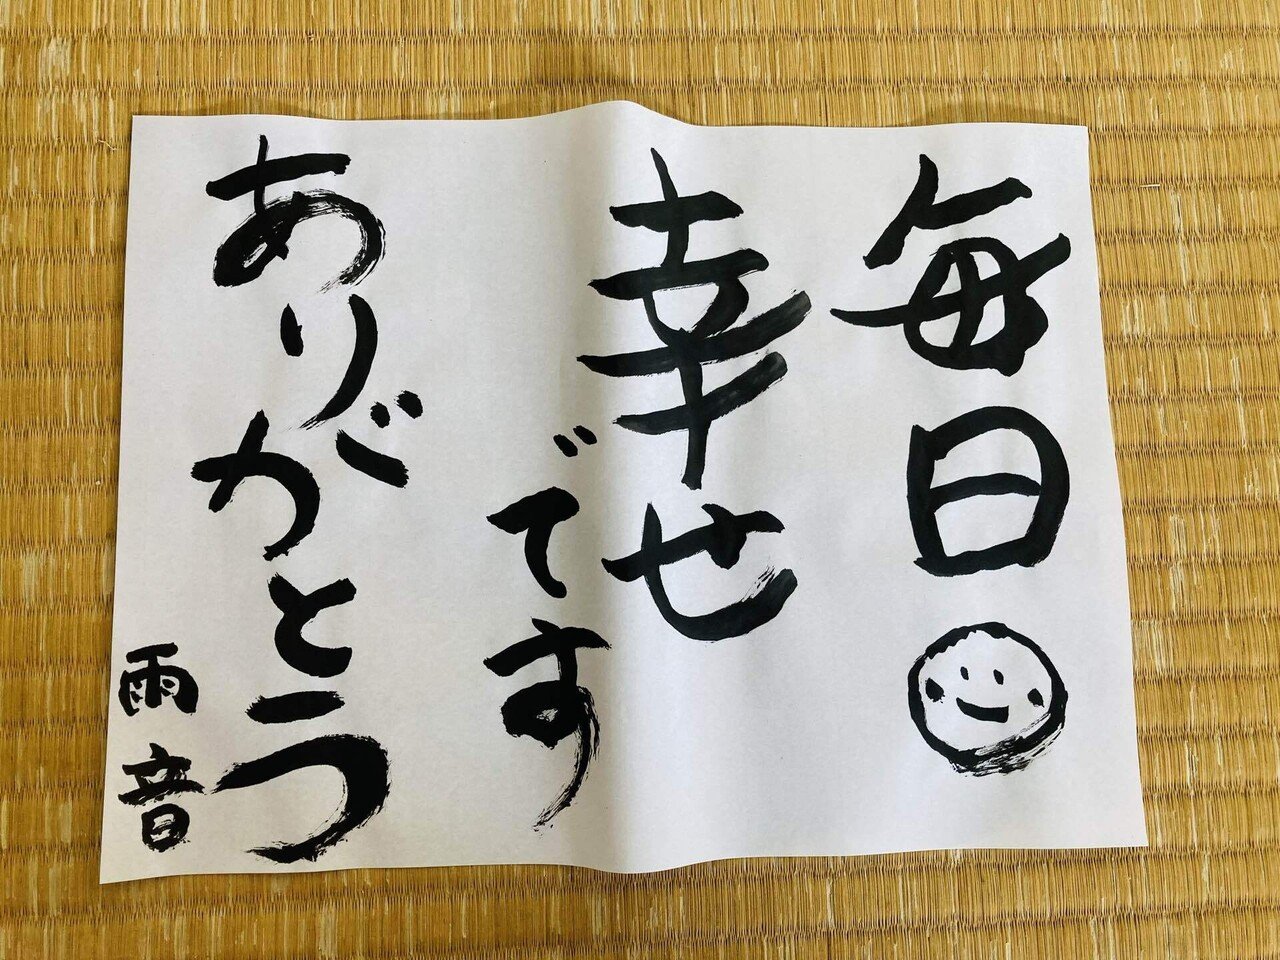 毎日
幸せ
です
ありがとう
雨音